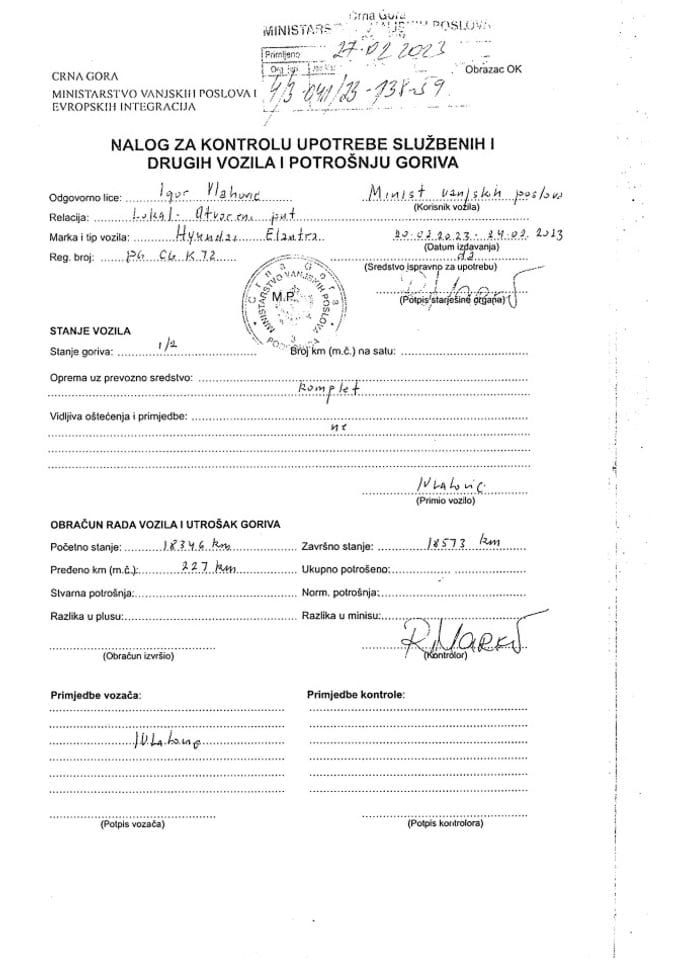 Crna Gora
MINISTARSTVO VANJSKIH POSLOVA
Primljeno 27.02.2023
Org. jed.
4/3-041/23-738-59
Obrazac OK
CRNA GORA
MINISTARSTVO VANJSKIH POSLOVA I
EVROPSKIH INTEGRACIJA
NALOG ZA KONTROLU UPOTREBE SLUŽBENIH I
DRUGIH VOZILA I POTROŠNJU GORIVA
Odgovorno lice: Igor Vlahović
Minist vanjskih poslova
(Korisnik vozila)
Relacija: Lokal - Otvoreni put
Marka i tip vozila: Hyundai Elantra
20.02.2023 - 24.02.2023
(Datum izdavanja)
Reg. broj: PG CG K 72
da
(Sredstvo ispravno za upotrebu)
Crna Gora
MINISTARSTVO VANJSKIH POSLOVA
3
PODGORICA
M.P.
(Potpis starješine organa)
STANJE VOZILA
Stanje goriva: 1/2
Broj km (m.č.) na satu:
Oprema uz prevozno sredstvo:
komplet
Vidljiva oštećenja i primjedbe:
ne
IVlahović
(Primio vozilo)
OBRAČUN RADA VOZILA I UTROŠAK GORIVA
Početno stanje: 18346 km Završno stanje: 18573 km
Pređeno km (m.č.): 227 km Ukupno potrošeno:
Stvarna potrošnja: Norm. potrošnja:
Razlika u plusu: Razlika u minisu:
(Obračun izvršio) (Kontrolor)
Primjedbe vozača: Primjedbe kontrole:
(Potpis vozača) (Potpis kontrolora)